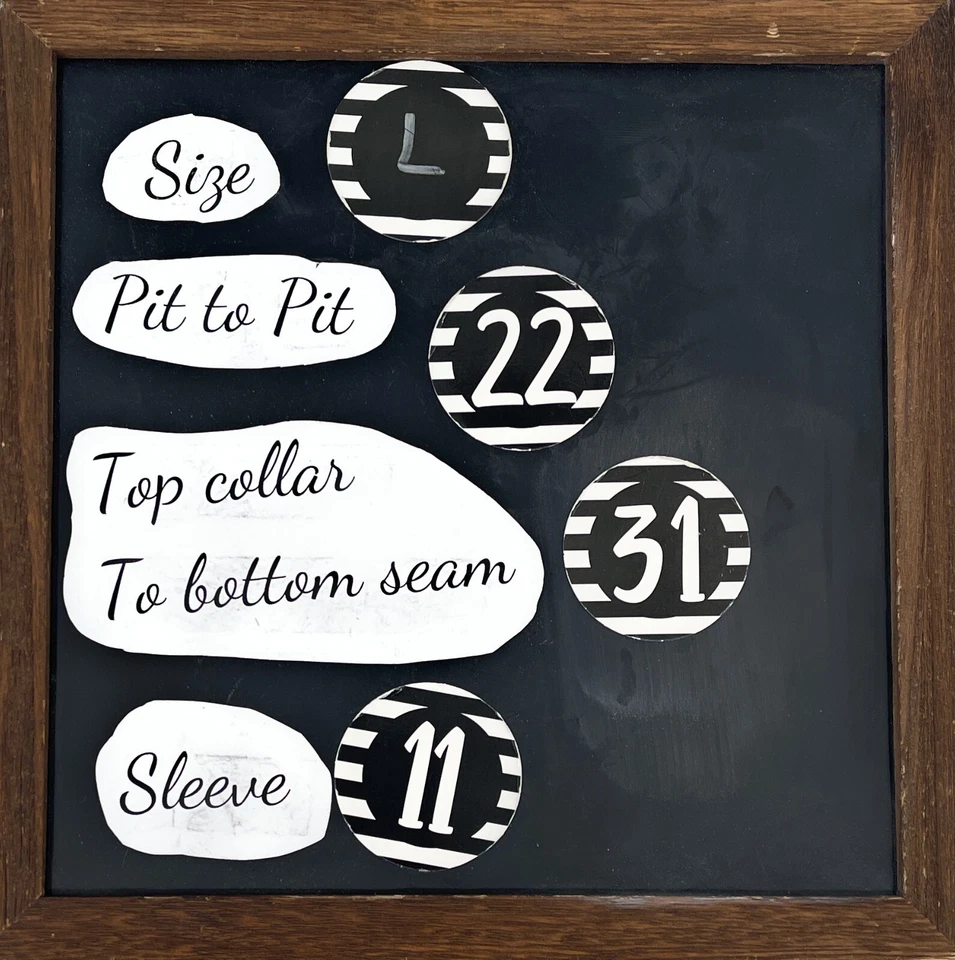 Size L
Pit to Pit 22
Top collar
To bottom seam 31
Sleeve 11